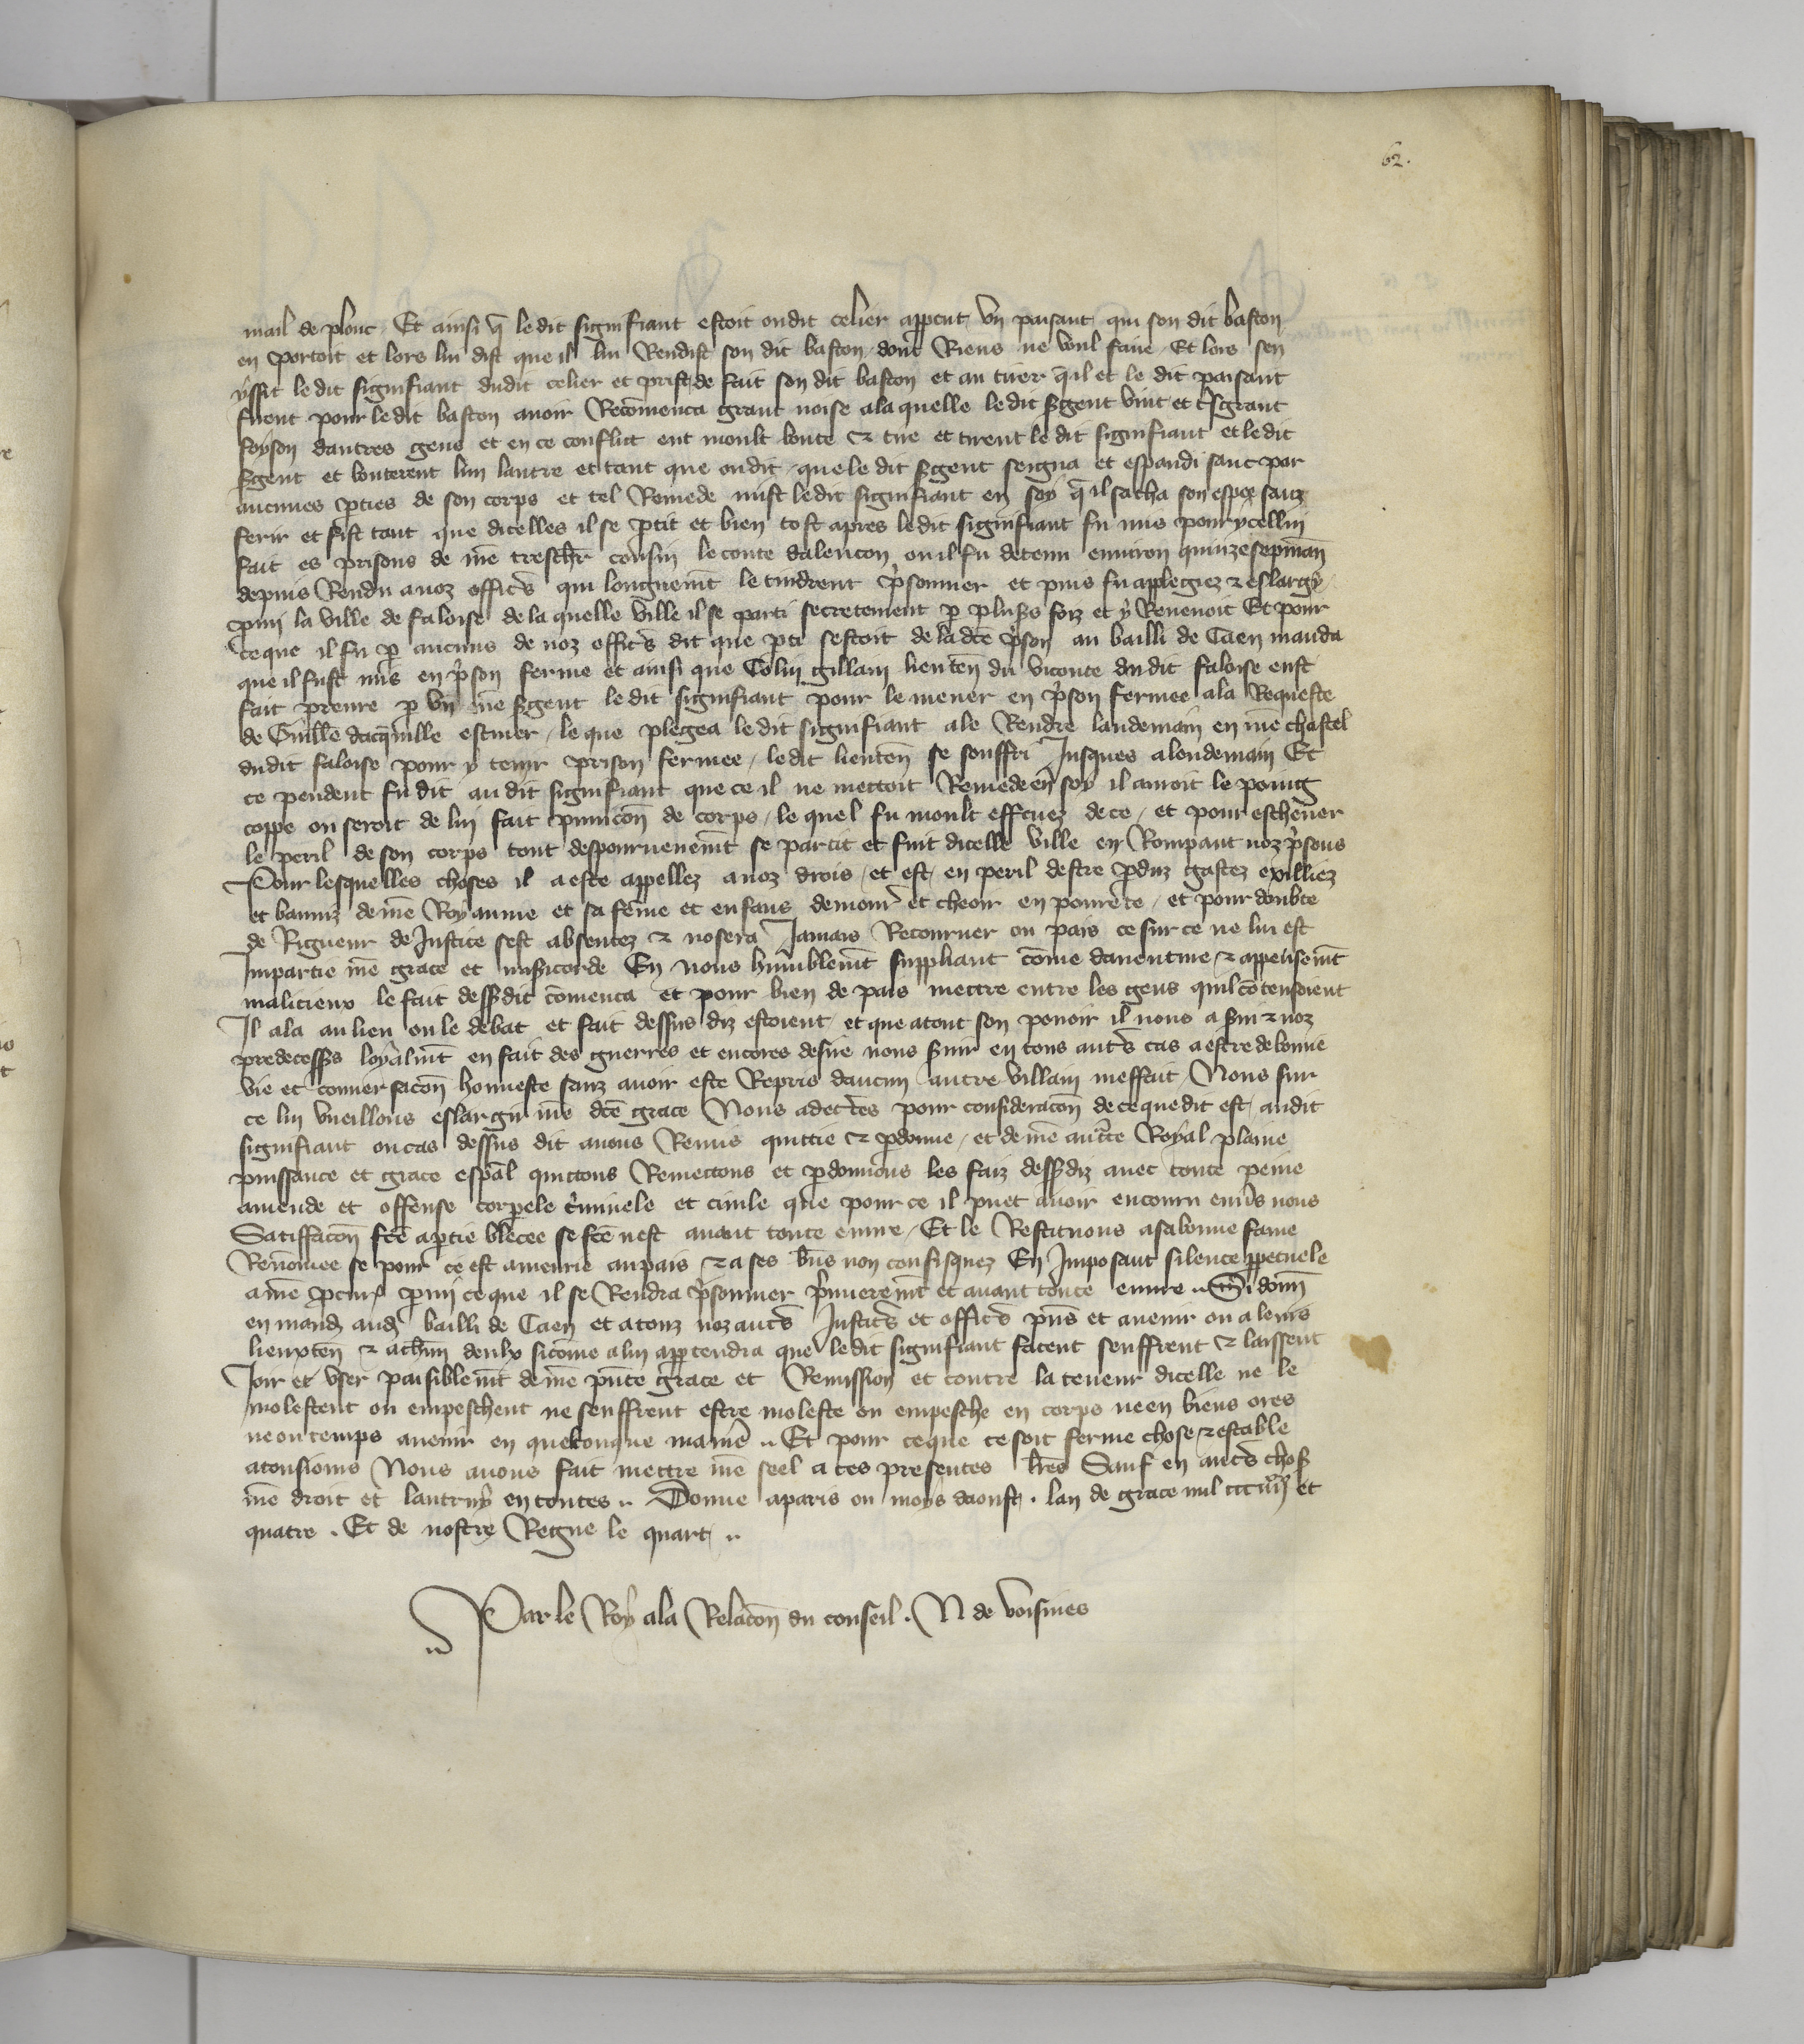 62.
mail de plonc Et ainsi q̄ le dit signifiant estoit ou dit celier apꝑcut vn paisant qui son dit baston
en portoit et lors lui dist que il lui Rendist son dit baston dont Riens ne voul faire Et lors sen
yssit le dit signifiant dudit celier et prist de fait son dit baston et au tirer q̄ il et le dit paisant
firent pour le dit baston auoir Recōmenca grant noise a la quelle le dit s̄gent vint et t̄sgrant
foyson dautres gens et en ce conflict eut moult boute et tire et tirent le dit signifiant et le dit
s̄gent et bouterent lun lautre et tant que on dit que le dit s̄gent seigna et espandi sanc par
aucunes ꝑties de son corps et tel Remede mist le dit signifiant en soy q̄ il sacha son espee sanz
ferir et fist tant que dicelles il se ꝑtit et bien tost apres le dit signifiant fu mis pour ycellui
fait es prisons de n̄re trescher cousin le conte dalencon ou il fu detenu enuiron quinze sepmain̄
depuis Rendu a noz offic̄s qui longuemt̄ le tindrent p̄sonnier et puis fu applegiez et eslargy
ꝑmi la ville de faloise de la quelle ville il se parti secretement ꝑ plus̄s foiz et y Reuenoit Et pour
ce que il fu ꝑ aucuns de noz offic̄s dit que ꝑti sestoit de la dc̄e p̄son au bailli de Caen manda
que il fust mis en p̄son ferme et ainsi que Colin gillain lieuten̄ du viconte du dit faloise eust
fait prenre ꝑ vn n̄re s̄gent le dit signifiant pour le mener en p̄son fermee a la Requeste
de Guill̄e dacq̄uille escuier le que plegea le dit signifiant a le Rendre landemain en n̄re chastel
dudit faloise pour y tenir prison fermee le dit lieuten̄ se souffri Jusques a lendemain Et
ce pendent fu dit au dit signifiant que ce il ne mettoit Remede en soy il auroit le poing
coppe ou seroit de lui fait punicōn de corps le quel fu moult effraez de ce et pour escheuer
le peril de son corps tout despourueuemt̄ se partit et fuit dicelle ville en Rompant noz p̄sons
Pour lesquelles choses il a este appellez a noz drois et est en peril destre ꝑduz gastez exilliez
et banniz de n̄re Royaume et sa fēme et enfans demour̄ et cheoir en pourete et pour doubte
de Rigueur de Justice sest absentez et nosera Jamais Retourner ou pais ce sur ce ne lui est
Impartie n̄re grace et mis̄icorde En nous humblemt̄ suppliant cōme dauenture et appensemt̄
malicieux le fait dess̄dit cōmenca et pour bien de pais mettre entre les gens quil cōtensoient
Il ala au lieu ou le debat et fait dessus diz estoient et que a tout son pouoir il nous a s̄ui et noz
predecess̄s loyalmt̄ en fait des guerres et encores desire nous s̄uir en tous aut̄s cas a estre de bonne
vie et conuersacōn honneste sanz auoir este Repris daucun autre villain meffait Nous sur
ce lui vueillons eslargir n̄re dc̄e grace Nous adec̄tes pour consideracōn de ce que dit est audit
signifiant ou cas dessus dit auons Remis quittie et ꝑdonne et de n̄re auct̄te Royal plaine
puissance et grace esp̄al quittons Remettons et ꝑdonnons les faiz dess̄diz auec toute peine
amende et offense corporele c̄minele et ciuile que pour ce il puet auoir encouru enūs nous
Satiffacōn fc̄e a ꝑtie blecee se fc̄e nest auant toute euure Et le Restituons a sa bonne fame
Renōmee se pour ce est amenrie au pais et a ses biēs non confisquez En Imposant silence ꝑpetuele
a n̄re ꝓcur̄ ꝑmi ce que il se Rendra p̄sonnier p̄mieremt̄ et auant toute euure Si donn̄
en mand̄ aud̄ bailli de Caen et a touz noz aut̄s Justic̄s et offic̄s p̄ns et auenir ou a leurs
lieuxten̄ et a ch̄un deulx sicōme a lui apꝑtendra que le dit signifiant facent seuffrent et laissent
Joir et vser paisiblemt̄ de n̄re p̄nte grace et Remission et contre la teneur dicelle ne le
molestent ou empeschent ne seuffrent estre moleste ou empesche en corps ne en biens ores
ne ou temps auenir en quelconque manie᷑ Et pour ce que ce soit ferme chose et estable
a tousiours Nous auons fait mettre n̄re seel a ces presentes l̄res Sauf en aut̄s chos̄
n̄re droit et lautruy en toutes Donne a paris ou moys daoust lan de grace mil ccc iiijxx et
quatre Et de nostre Regne le quart
Par le Roy a la Relacōn du conseil N de voisines